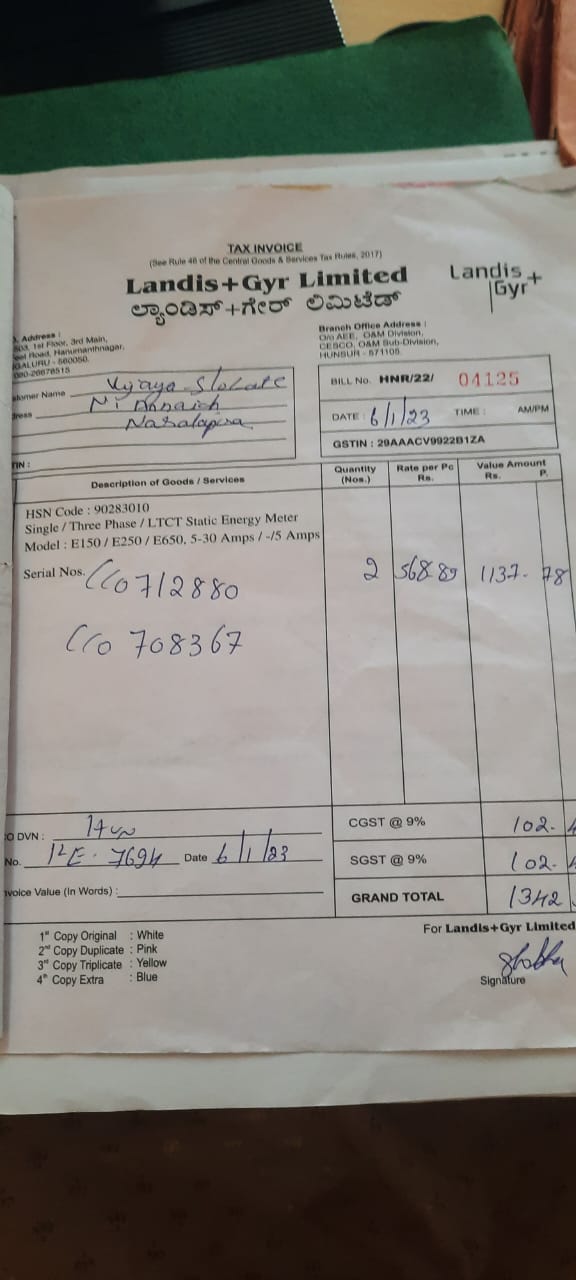 TAX INVOICE
(See Rule 46 of the Central Goods & Services Tax Rules, 2017)
Landis+Gyr Limited
ಲ್ಯಾಂಡಿಸ್+ಗೇರ್ ಲಿಮಿಟೆಡ್
Landis+
Gyr
. Address :
503, 1st Floor, 3rd Main,
Road, Hanumanthnagar,
GALURU - 560050.
080-26676515
Branch Office Address :
O/o AEE, O&M Division,
CESCO, O&M Sub-Division,
HUNSUR - 571105.
tomer Name Vijaya
ress
BILL No. HNR/22/ 04125
DATE : 6/1/23 TIME : AM/PM
GSTIN : 29AAACV9922B1ZA
TIN :
Description of Goods / Services
Quantity (Nos.)
Rate per Pc Rs.
Value Amount Rs. P.
HSN Code : 90283010
Single / Three Phase / LTCT Static Energy Meter
Model : E150 / E250 / E650, 5-30 Amps / -/5 Amps
Serial Nos. 0712880 2 568-89 1137- 78
708367
O DVN :
No. 7694 Date 6/1/23
nvoice Value (In Words) :
CGST @ 9% 102-
SGST @ 9% 102-
GRAND TOTAL 1342
For Landis+Gyr Limited
1st Copy Original : White
2nd Copy Duplicate : Pink
3rd Copy Triplicate : Yellow
4th Copy Extra : Blue
Signature